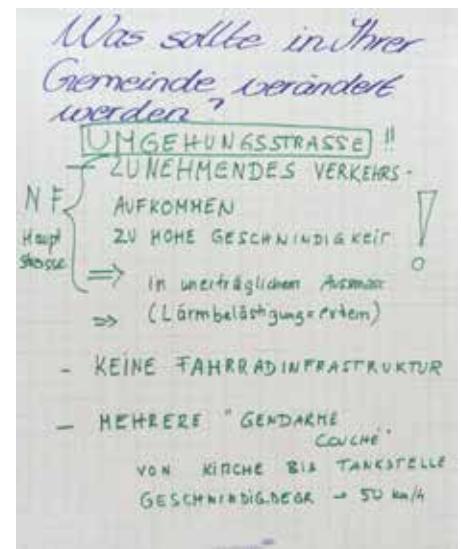 Was sollte in Ihrer
Gemeinde verändert
werden?
UMGEHUNGSSTRASSE !!
— ZUNEHMENDES VERKEHRS-
NF AUFKOMMEN
Haupt ZU HOHE GESCHWINDIGKEIT !
Strasse
⇒ in unerträglichem Ausmass
⇒ (Lärmbelästigung = extem)
- KEINE FAHRRADINFRASTRUKTUR
- MEHRERE "GENDARME
COUCHÉ"
VON KIRCHE BIS TANKSTELLE
GESCHWINDIG.BEGR → 50 km/h